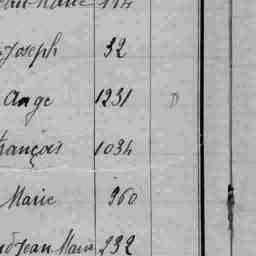 Jean Marie 114
Joseph 32
Ange 1231 D
François 1034
Marie 360
Jean Marie 232